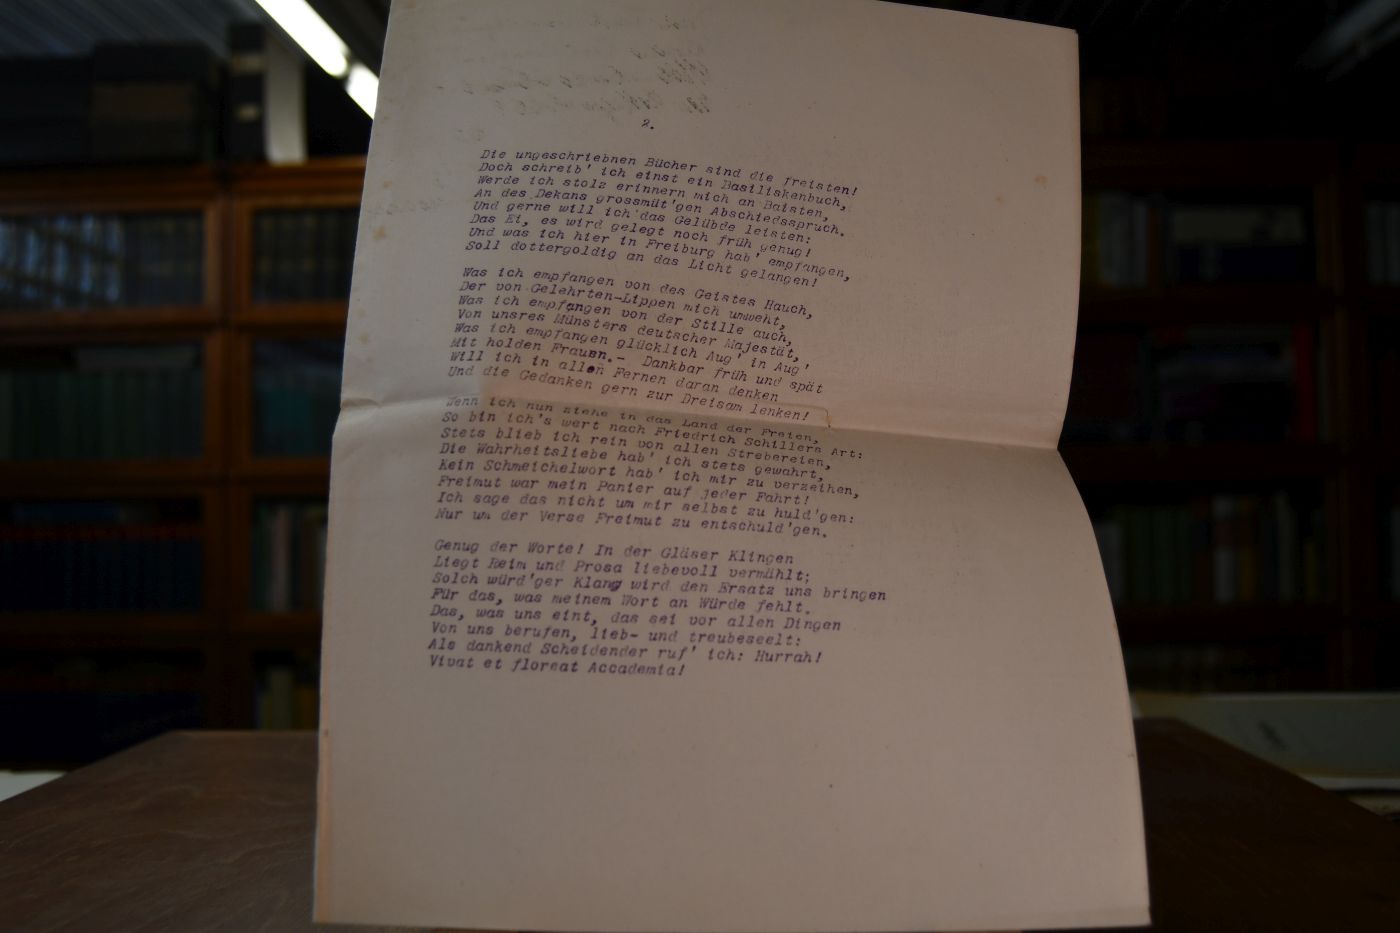 2.
Die ungeschriebnen Bücher sind die freisten!
Doch schreib' ich einst ein Basiliskenbuch,
Werde ich stolz erinnern mich an Baisten,
An des Dekans grossmüt'gen Abschiedsspruch.
Und gerne will ich das Gelübde leisten:
Das Ei, es wird gelegt noch früh genug!
Und was ich hier in Freiburg hab' empfangen,
Soll dottergoldig an das Licht gelangen!
Was ich empfangen von des Geistes Hauch,
Der von Gelehrten-Lippen mich umweht,
Was ich empfangen von der Stille auch,
Von unsres Münsters deutscher Majestät,
Was ich empfangen glücklich Aug' in Aug'
Mit holden Frauen.- Dankbar früh und spät
Will ich in allen Fernen daran denken
Und die Gedanken gern zur Dreisam lenken!
Wenn ich nun ziehe in das Land der Freien,
So bin ich's wert nach Friedrich Schillers Art:
Stets blieb ich rein von allen Strebereien,
Die Wahrheitsliebe hab' ich stets gewahrt,
Kein Schmeichelwort hab' ich mir zu verzeihen,
Freimut war mein Panier auf jeder Fahrt!
Ich sage das nicht um mir selbst zu huld'gen:
Nur um der Verse Freimut zu entschuld'gen.
Genug der Worte! In der Gläser Klingen
Liegt Reim und Prosa liebevoll vermählt;
Solch würd'ger Klang wird den Ersatz uns bringen
Für das, was meinem Wort an Würde fehlt.
Das, was uns eint, das sei vor allen Dingen
Von uns berufen, lieb- und treubeseelt:
Als dankend Scheidender ruf' ich: Hurrah!
Vivat et floreat Accademia!